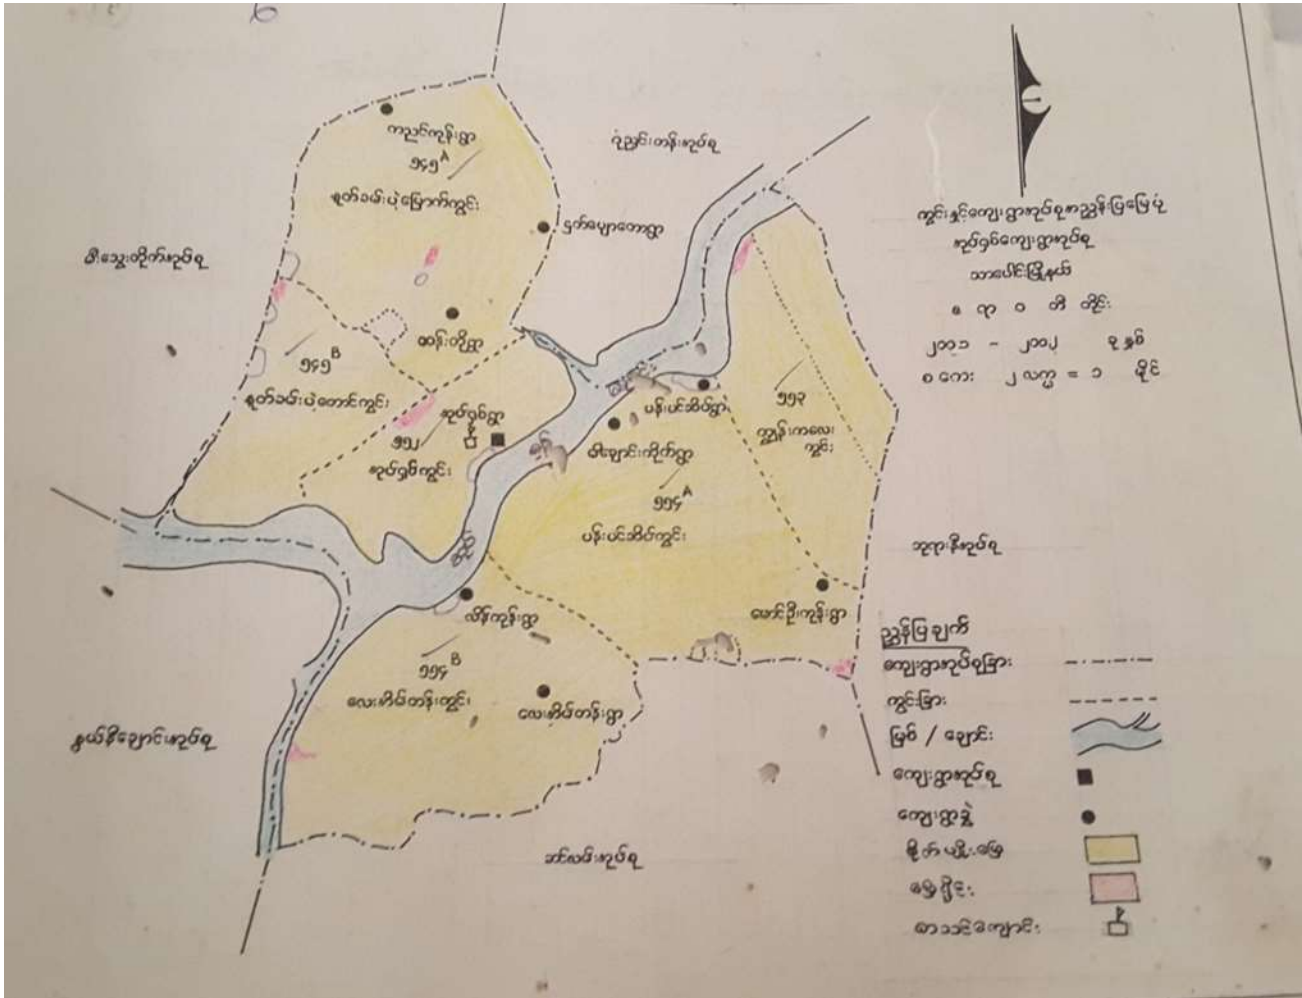 ကညင်ကုန်းရွာ
၅၄၅ A
စွတ်ခမ်းပဲ့မြောက်ကွင်း
ငှက်ပျောတောရွာ
ဝဲန်းတိုရွာ
၅၄၅ B
စွတ်ခမ်းပဲ့တောင်ကွင်း
အုပ်ရှစ်ရွာ
၅၅၂
အုပ်ရှစ်ကွင်း
ပန်းပင်ဆိပ်ရွာ
၅၅၃
ကျွန်းကလေး
ကွင်း
ပါချောင်းကိုက်ရွာ
၅၅၄ A
ပန်းပင်ဆိပ်ကွင်း
မောင်ဦးကုန်းရွာ
လိန်ကုန်းရွာ
၅၅၄ B
လေးအိမ်တန်းကွင်း
လေးအိမ်တန်းရွာ
နွယ်နီချောင်းအုပ်စု
ဘုရားနီအုပ်စု
ကွင်းနှင့်ကျေးရွာအုပ်စုအညွှန်းပြမြေပုံ
အုပ်ရှစ်ကျေးရွာအုပ်စု
သာပေါင်းမြို့နယ်
ဧ ရာ ဝ တီ တိုင်း
၂၀၀၁ - ၂၀၀၂ ခု နှစ်
စကေး ၂ လက္မ = ၁ မိုင်
ညွှန်ပြချက်
ကျေးရွာအုပ်စုခြား
ကွင်းခြား
မြစ် / ချောင်း
ကျေးရွာအုပ်စု
ကျေးရွာခွဲ
စိုက်ပျိုးမြေ
မြေရိုင်း
စာသင်ကျောင်း